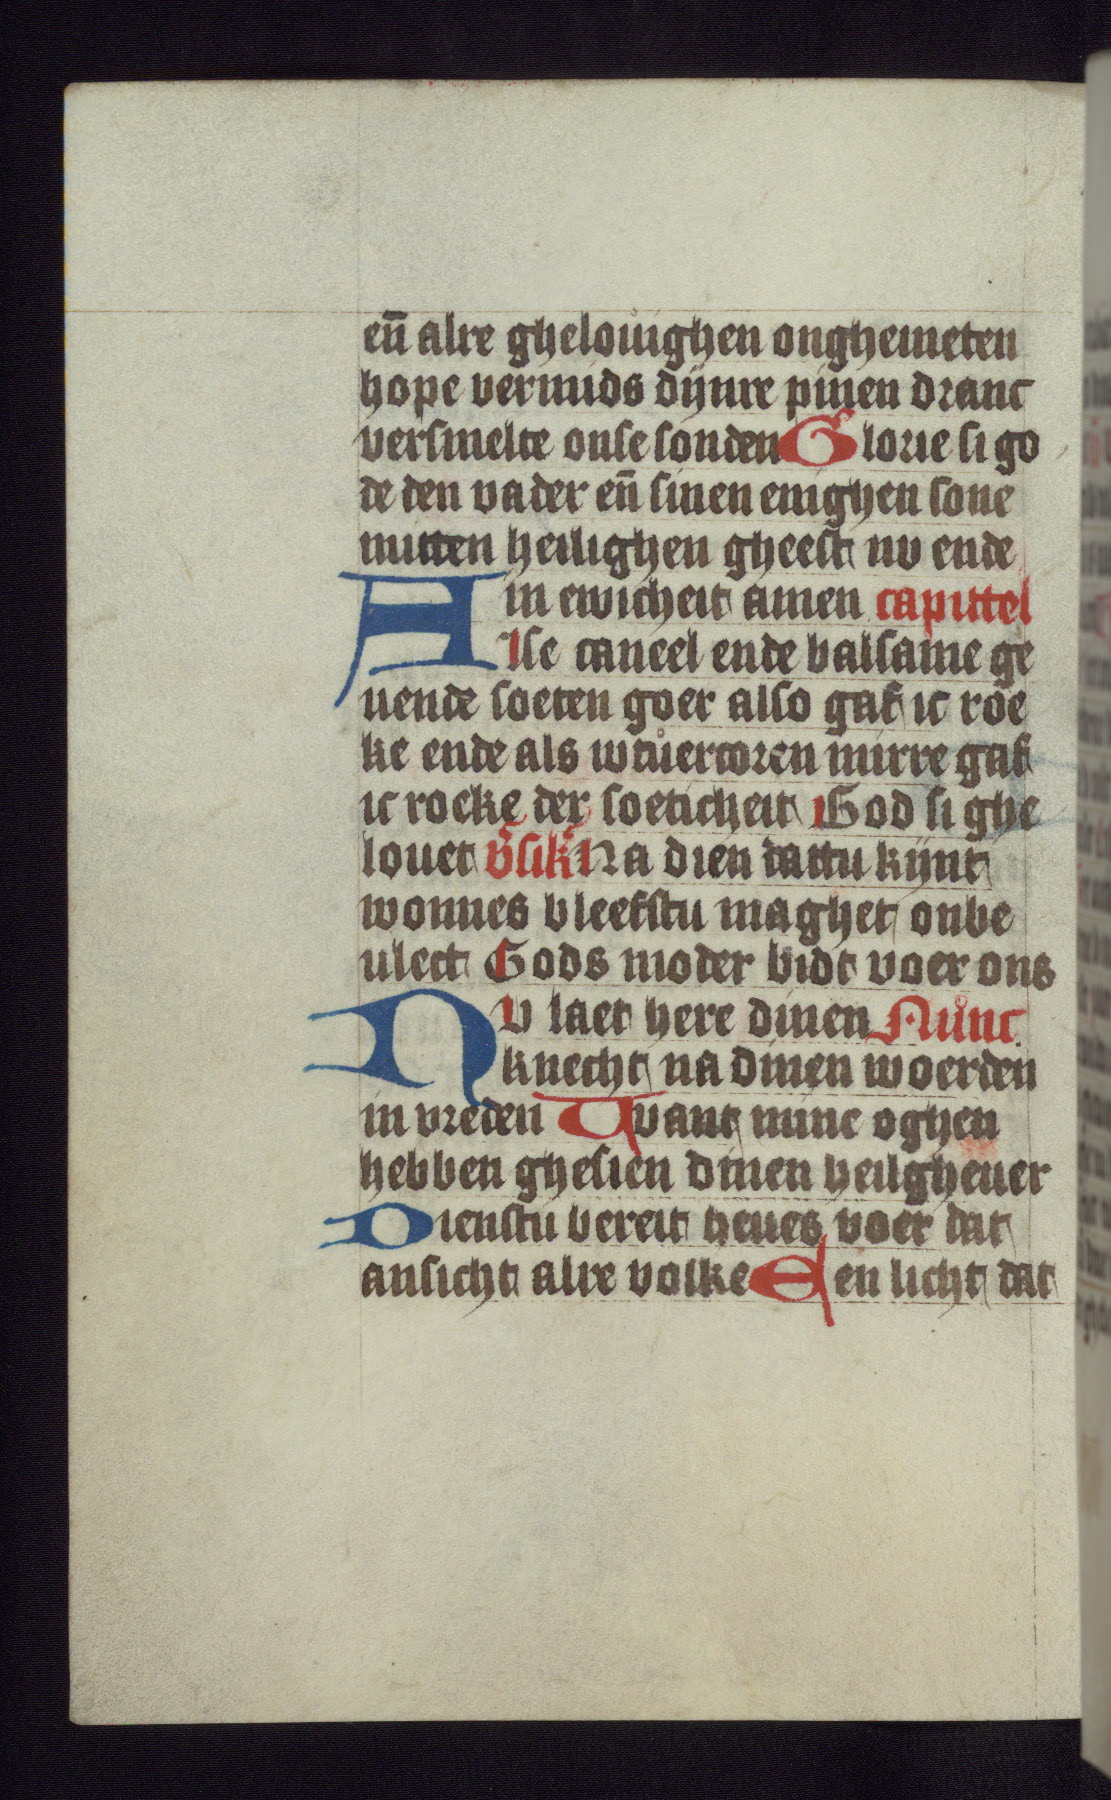 en̄ alre ghelouighen onghemeten
hope vermids dijnre pinen dranc
versmelte onse sonden Glorie si go
de den vader en̄ sinen enighen sone
mitten heilighen gheest nv ende
in ewicheit amen capittel
Alse caneel ende balsame ge
uende soeten goer also gaf ic roe
ke ende als wtuercoren mirre gaf
ic roeke der soeticheit God si ghe
louet v̄sik̄ Na dien dattu kijnt
wonnes bleefstu maghet onbe
ulect Gods moder bidt voer ons
Nv laet here dinen Nunc
knecht na dinen woerden
in vreden Want mine oghen
hebben ghesien dinen heilgheuer
Dienstu bereit heues voer dat
ansicht alre volke Een licht dat